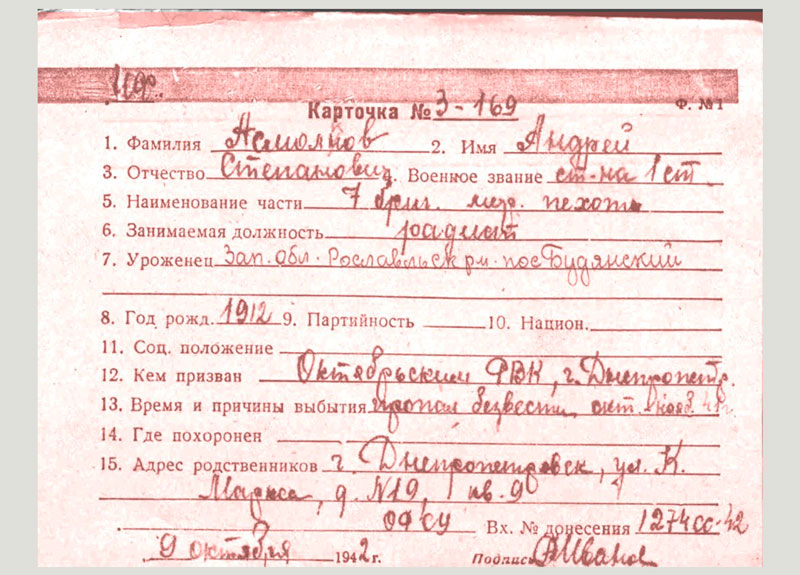 Карточка № 3-169 Ф. №1
1. Фамилия Асмолков 2. Имя Андрей
3. Отчество Степанович 4. Военное звание ст-на 1 ст
5. Наименование части 7 бриг. мор. пехоты
6. Занимаемая должность радист
7. Уроженец Зап. обл. Рославльск рн. пос Будянский
8. Год рожд. 1912 9. Партийность 10. Национ.
11. Соц. положение
12. Кем призван Октябрьским РВК, г. Днепропетр.
13. Время и причины выбытия пропал безвести окт.
14. Где похоронен
15. Адрес родственников г. Днепропетровск, ул. К.
Маркса, д. N19, кв. 90
Вх. № донесения 1274сс-42
9 октября 1942 г. Подпись Иванов